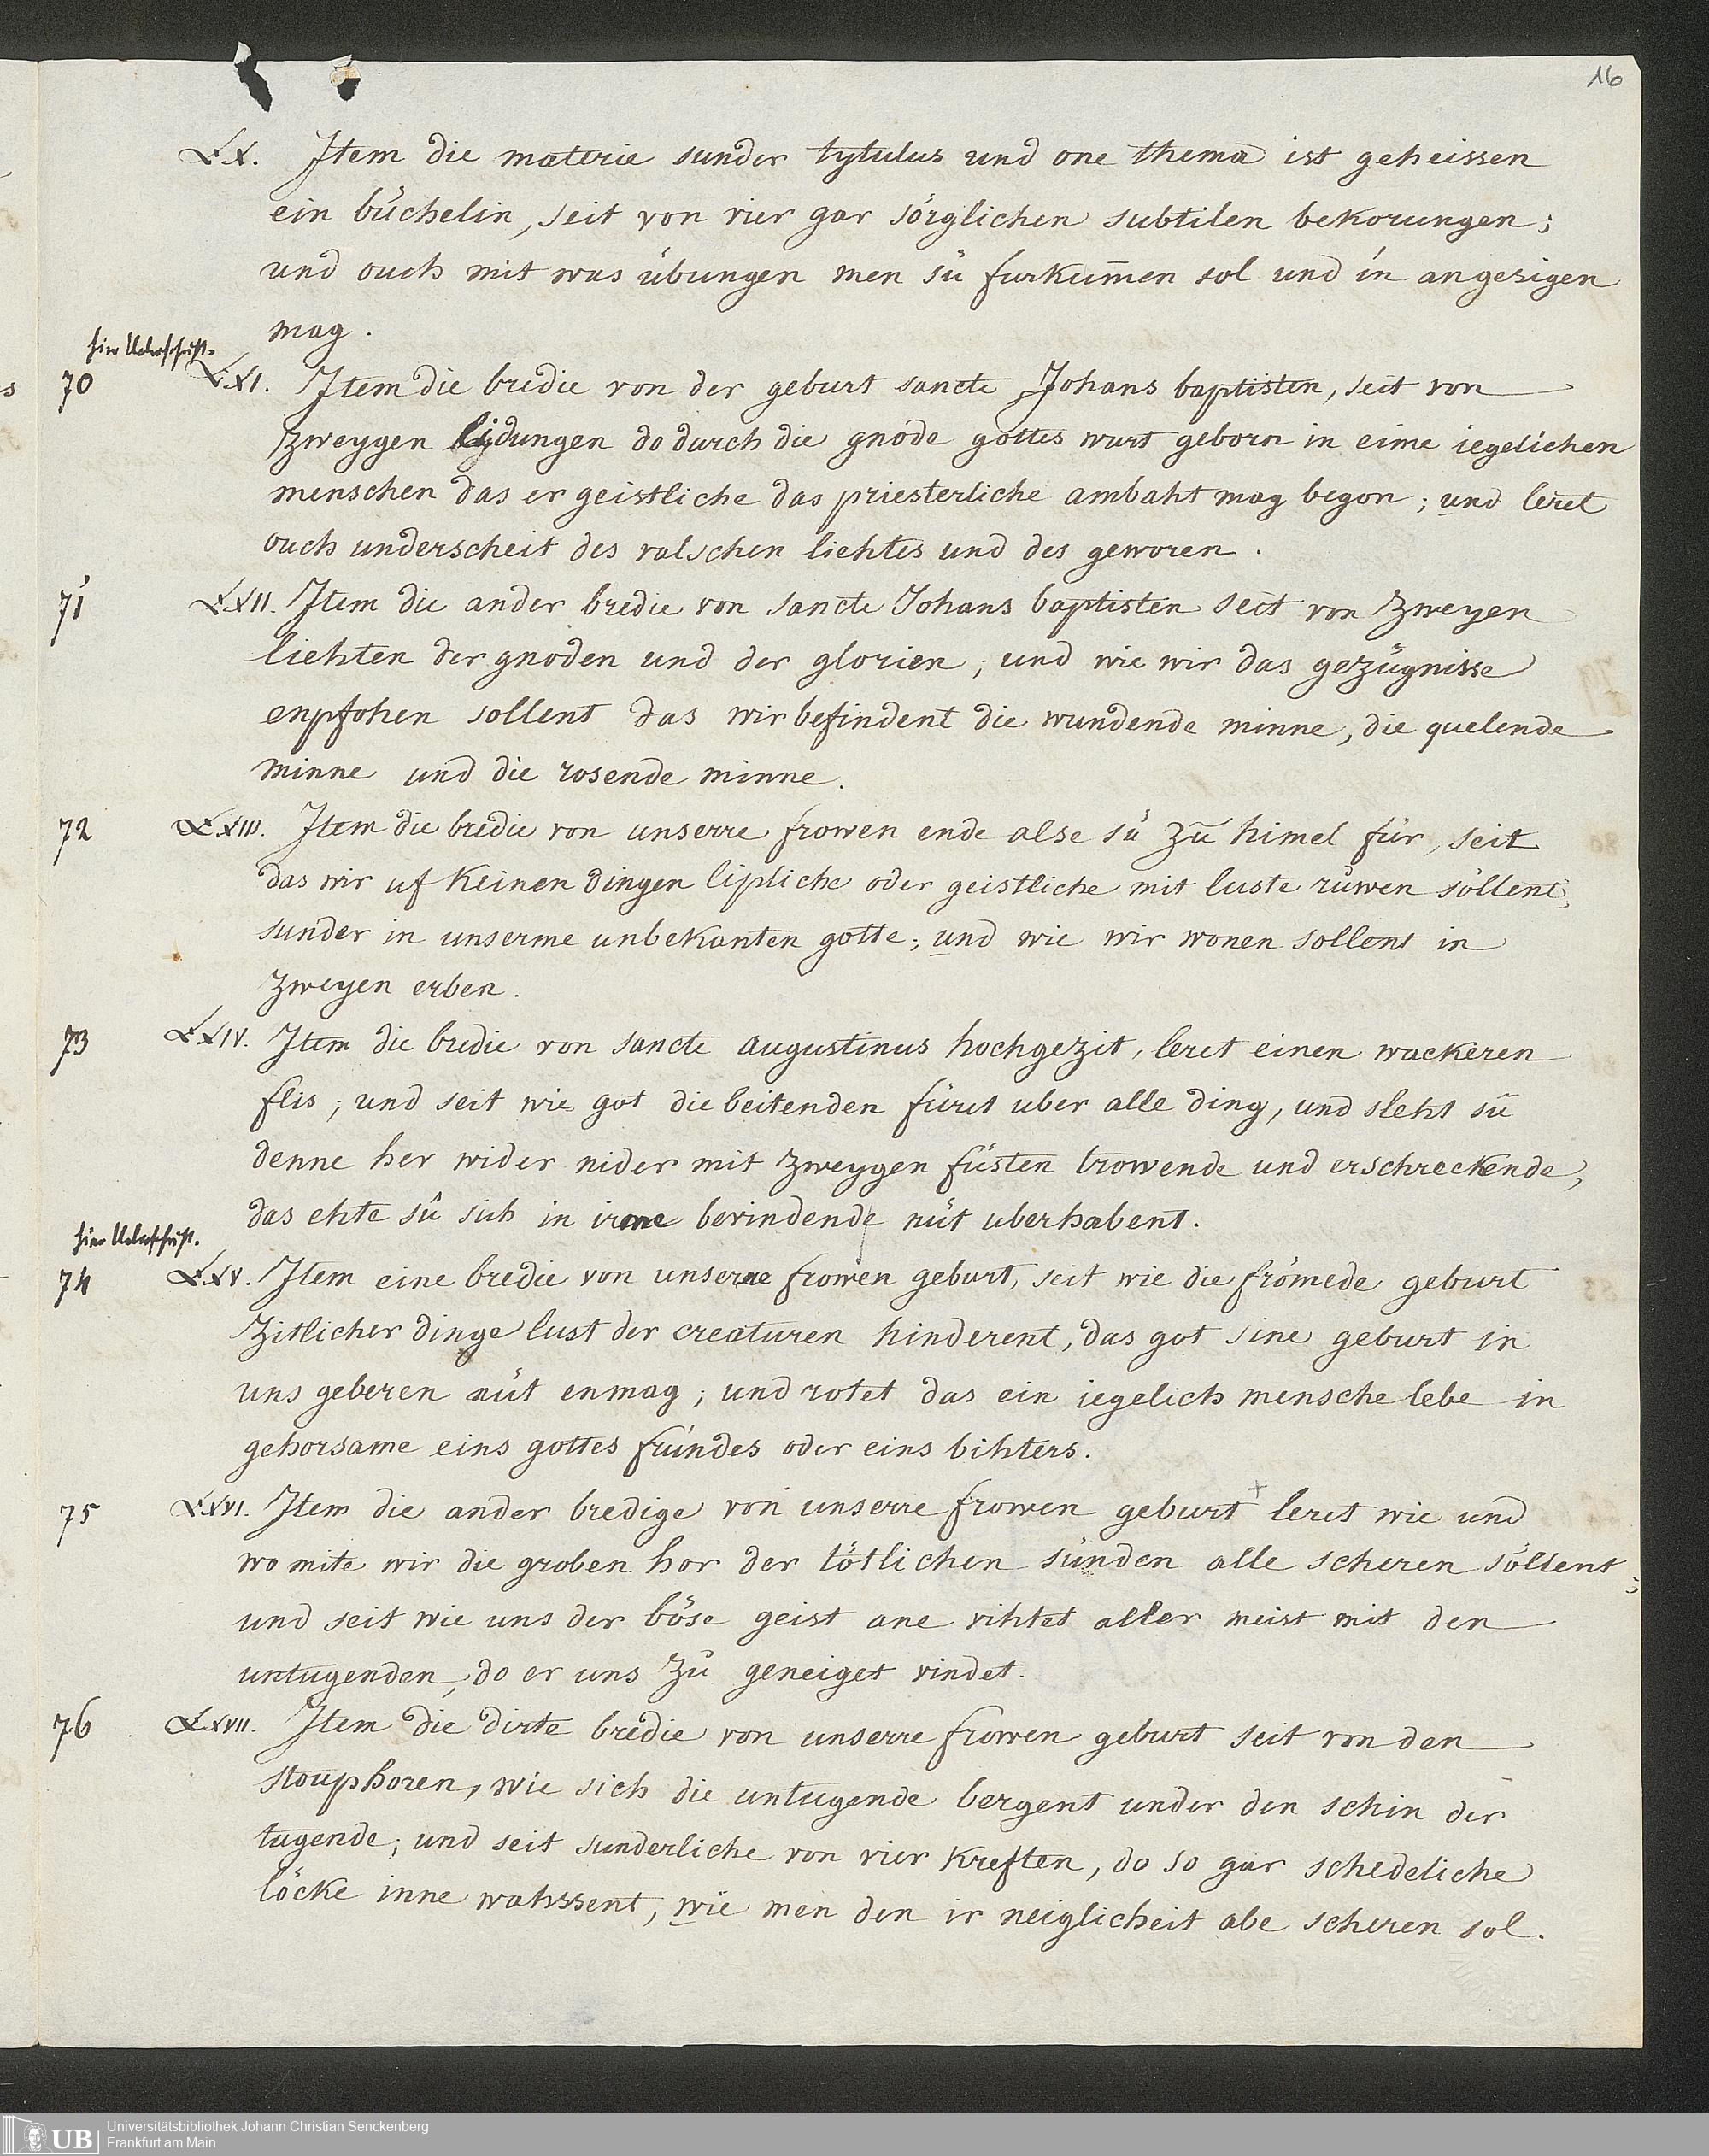 16
LX. Item die materie sunder tytulus und one thema ist geheissen
ein büchelin, seit von vier gar sörglichen subtilen bekorungen;
und ouch mit was übungen men sü furkum̄en sol und in angesigen
mag.
hier Ueberschrift.
70 LXI. Item die bredie von der geburt sancte Johans baptisten, seit von
zweygen lydungen do durch die gnode gottes wurt geborn in eime iegelichen
menschen das er geistliche das priesterliche ambaht mag begon; und leret
ouch underscheit des valschen liehtes und des gewören.
71 LXII. Item die ander bredie von sancte Johans baptisten seit von zweyen
liehten der gnoden und der glorien; und wie wir das gezügnisse
enpfohen sollent das wir befindent die wundende minne, die quelende
minne und die rosende minne.
72 LXIII. Item die bredie von unserre frowen ende alse sü zů himel für, seit
das wir uf keinen dingen lipliche oder geistliche mit luste růwen söllent,
sunder in unserme unbekanten gotte; und wie wir wonen sollent in
zweyen erben.
73 LXIV. Item die bredie von sancte augustinus hochgezit, leret einen wackeren
flis; und seit wie got die beitenden füret uber alle ding, und sleht sü
denne her wider nider mit zweygen füsten trowende und erschreckende,
das ehte sü sich in irme bevindende nüt uberhabent.
hier Ueberschrift.
74 LXV. Item eine bredie von unserre frowen geburt, seit wie die frömede geburt
zitlicher dinge lust der creaturen hinderent, das got sine geburt in
uns geberen nüt enmag; und rotet das ein iegelich mensche lebe in
gehorsame eins gottes fründes oder eins bihters.
75 LXVI. Item die ander bredige von unserre frowen geburt + leret wie und
wo mite wir die groben hor der tötlichen sünden alle scheren söllent;
und seit wie uns der böse geist ane vihtet aller meist mit den
untugenden, do er uns zů geneiget vindet.
76 LXVII. Item die dirte bredie von unserre frowen geburt seit von den
stouphoren, wie sich die untugende bergent under den schin der
tugende; und seit sunderliche von vier kreften, do so gar schedeliche
löcke inne wahssent, wie men den ir neiglicheit abe scheren sol.
UB Universitätsbibliothek Johann Christian Senckenberg
Frankfurt am Main